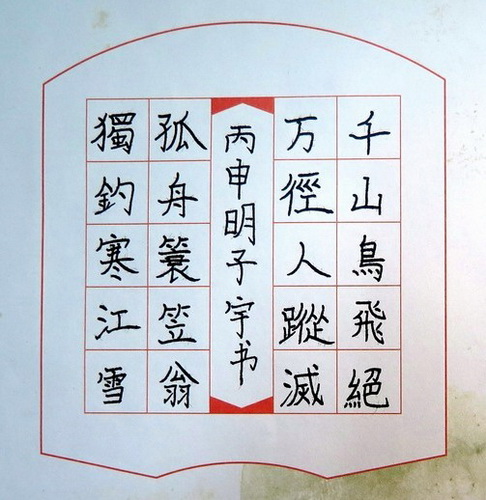 千山鳥飛絕
万徑人蹤滅
丙申明子宇书
孤舟簑笠翁
獨釣寒江雪